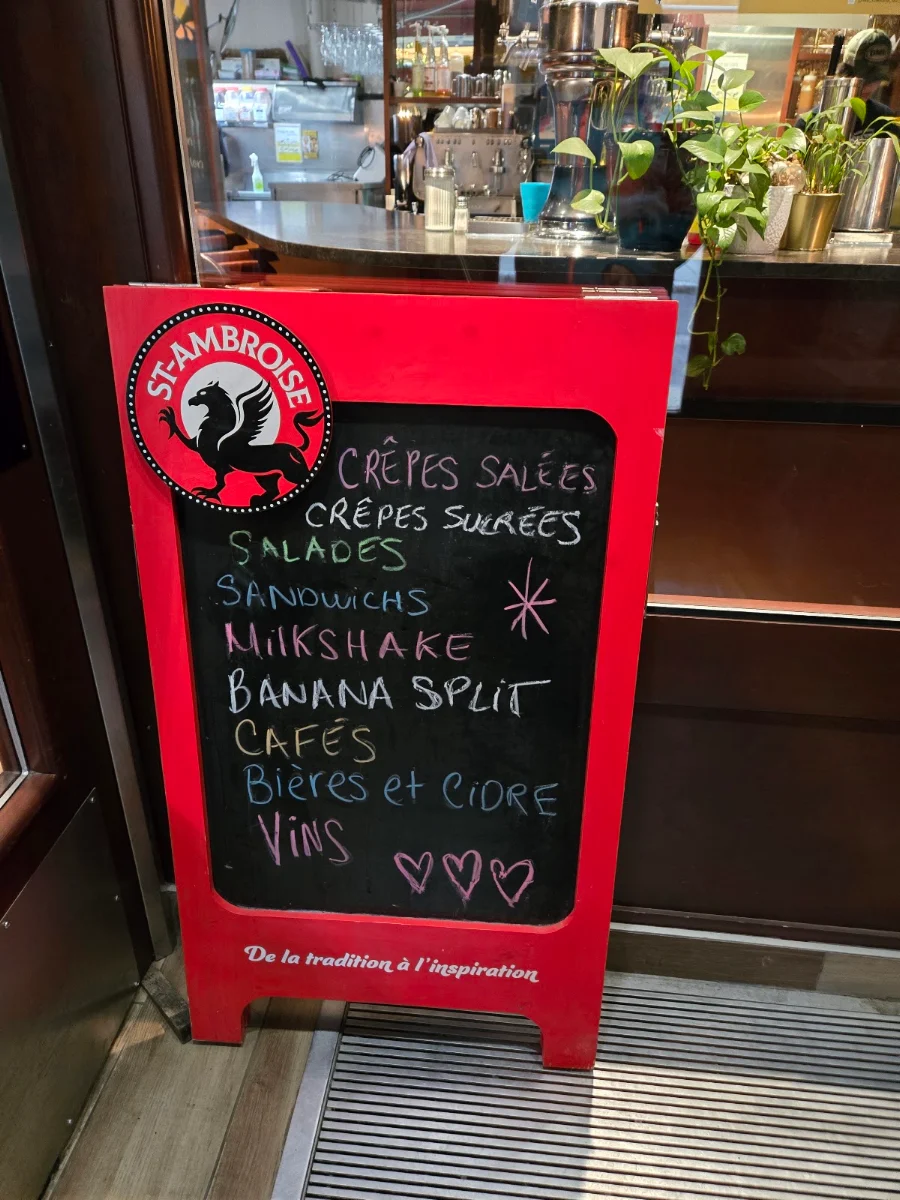 ST-AMBROISE
CRÊPES SALÉES
CRÊPES SUCRÉES
SALADES
SANDWICHS
MiLKSHAKE
BANANA SPLiT
CAFÉS
Bières et CiDRE
ViNS
De la tradition à l'inspiration